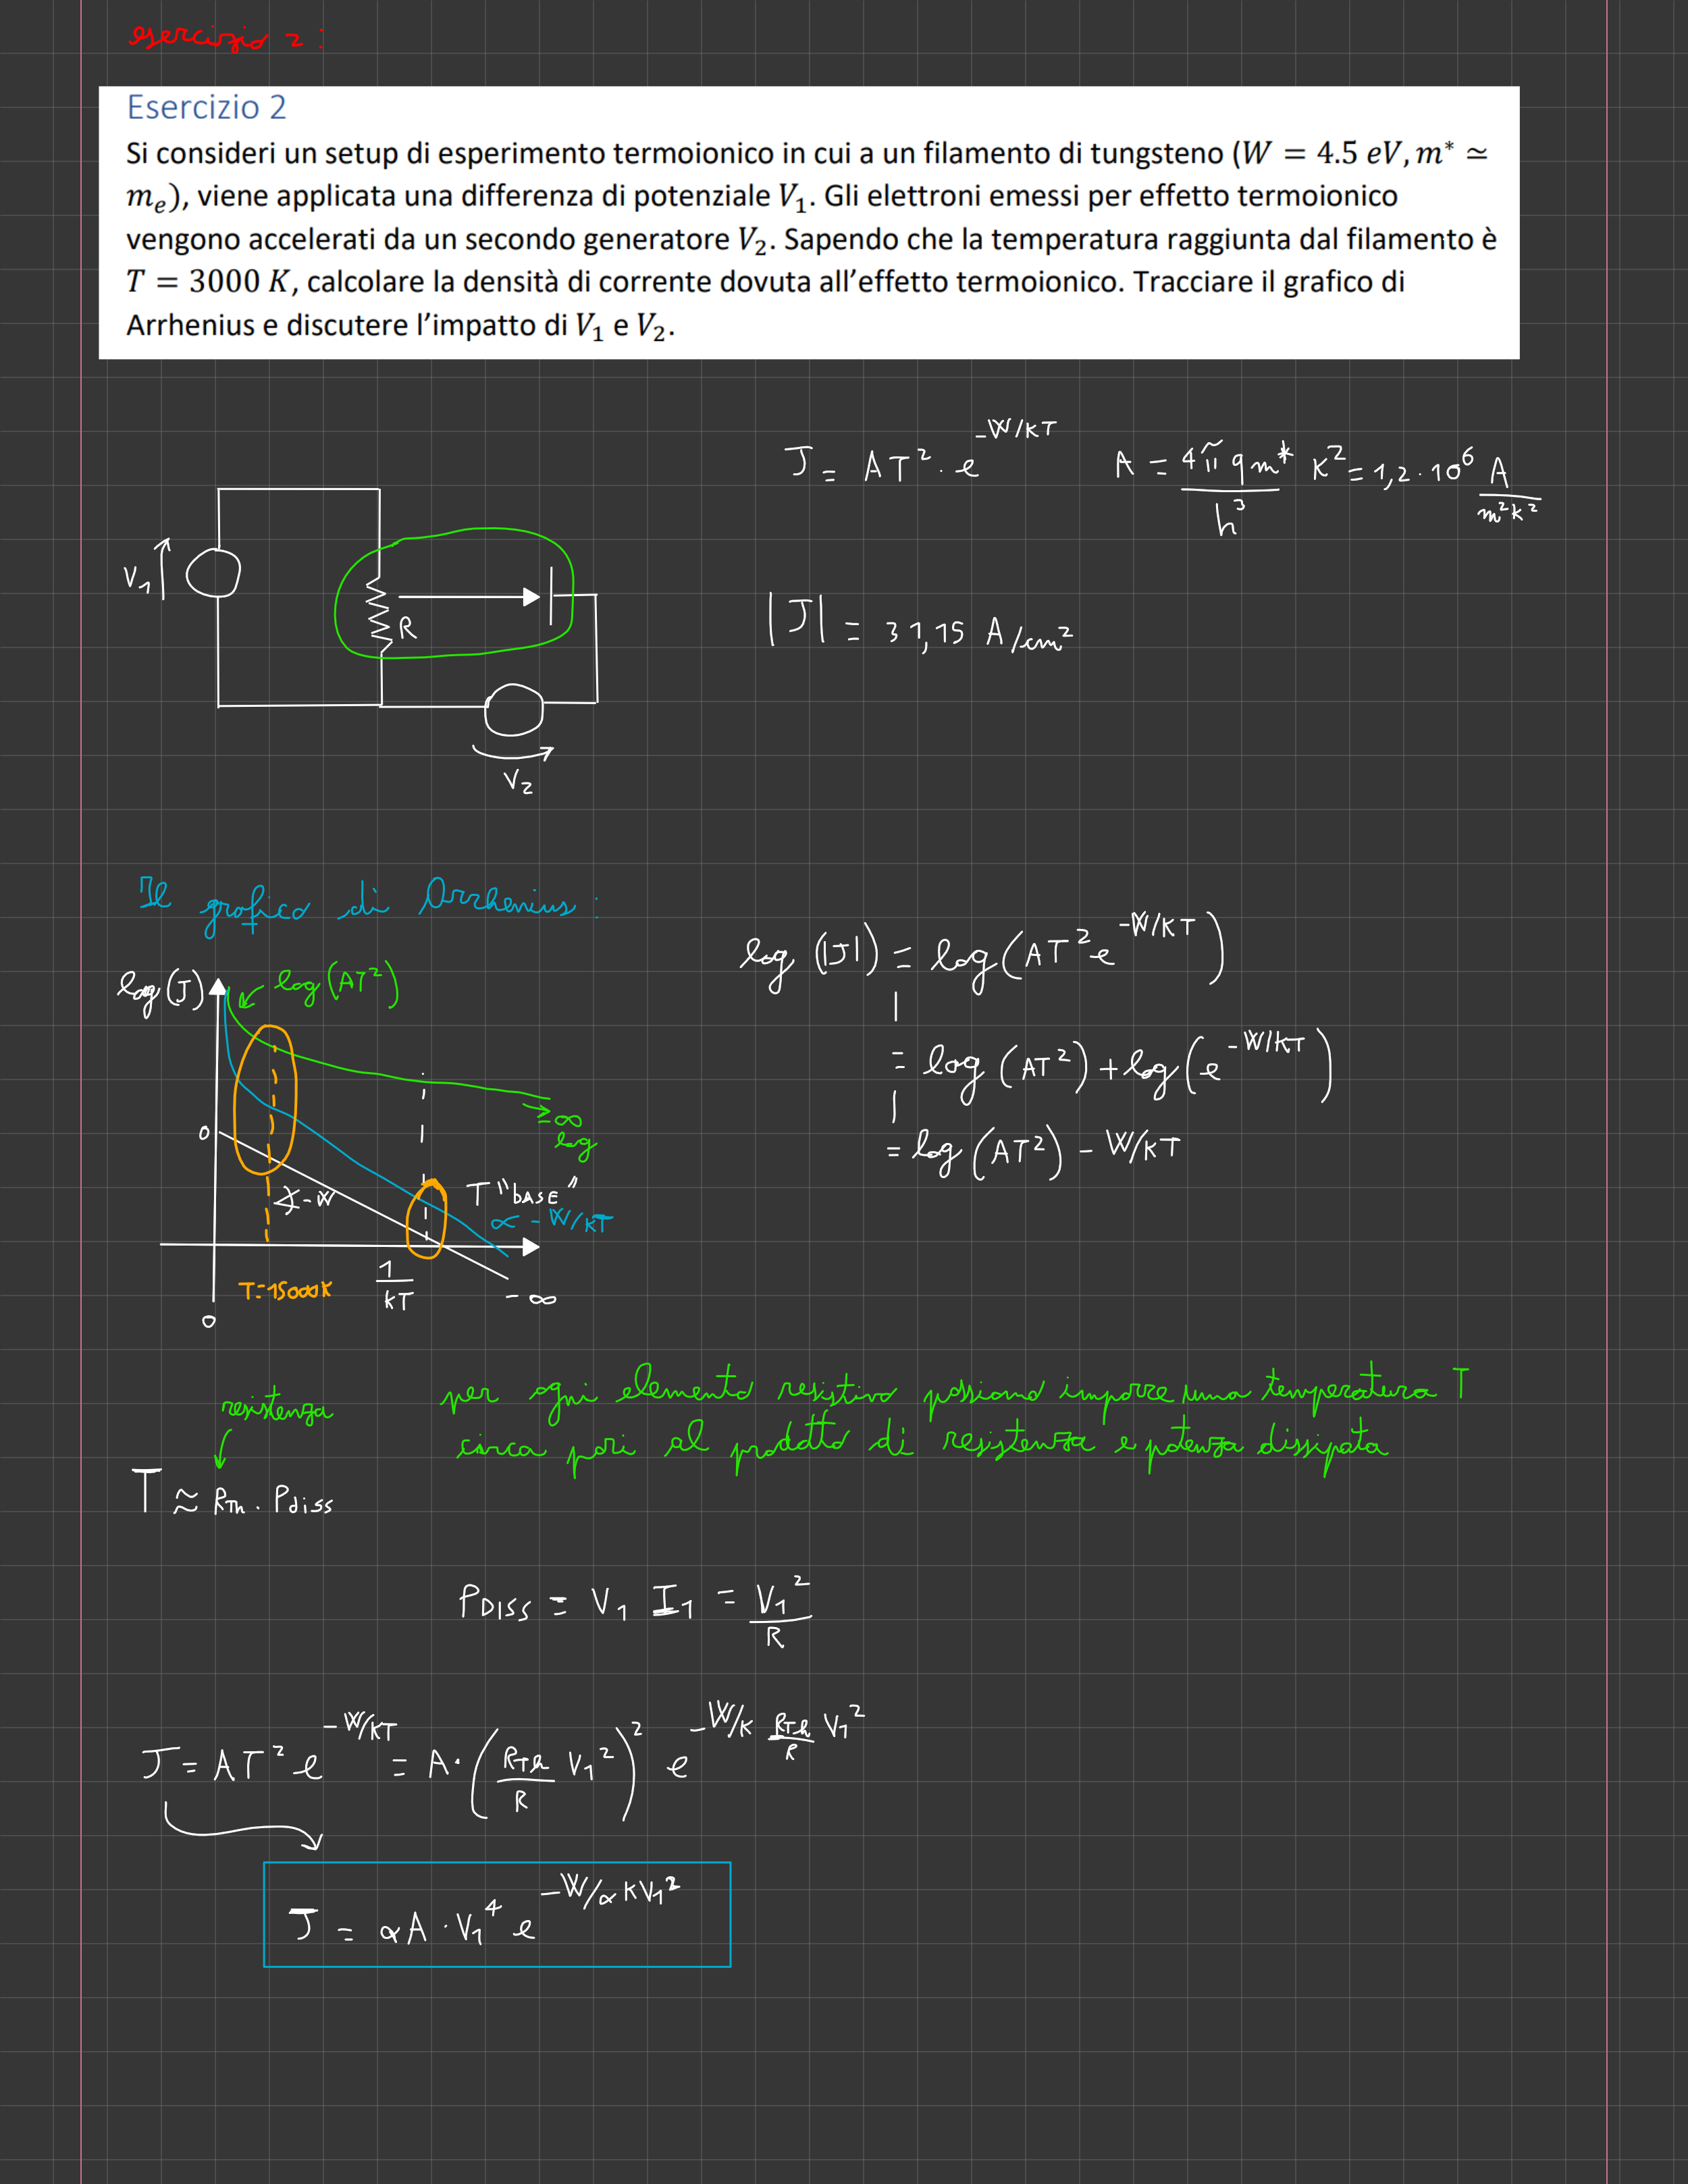 esercizio 2:
Esercizio 2
Si consideri un setup di esperimento termoionico in cui a un filamento di tungsteno (W = 4.5 eV, m* ≃
mₑ), viene applicata una differenza di potenziale V₁. Gli elettroni emessi per effetto termoionico
vengono accelerati da un secondo generatore V₂. Sapendo che la temperatura raggiunta dal filamento è
T = 3000 K, calcolare la densità di corrente dovuta all'effetto termoionico. Tracciare il grafico di
Arrhenius e discutere l'impatto di V₁ e V₂.
J = AT² · e^(-W/KT)
A = (4π q m*)/h³ K² = 1,2 · 10⁶ A/(m²K²)
V₁
R
V₂
|J| = 31,15 A/cm²
Il grafico di Arrhenius:
log(J)
log(AT²)
0
-∞
log
∡-W
T "BASE"
∝ -W/KT
T=15000K
1/KT
-∞
0
log(|J|) = log(AT² e^(-W/KT))
= log(AT²) + log(e^(-W/KT))
= log(AT²) - W/KT
resistenza
per ogni elemento resistivo possiamo imporre una temperatura T
circa pari al prodotto di resistenza e potenza dissipata
T ≈ R_Th · P_diss
P_DISS = V₁ I₁ = V₁²/R
J = AT² e^(-W/KT) = A·(R_Th/R V₁²)² e^(-W/K R_Th/R V₁²)
J = αA · V₁⁴ e^(-W/αKV₁²)